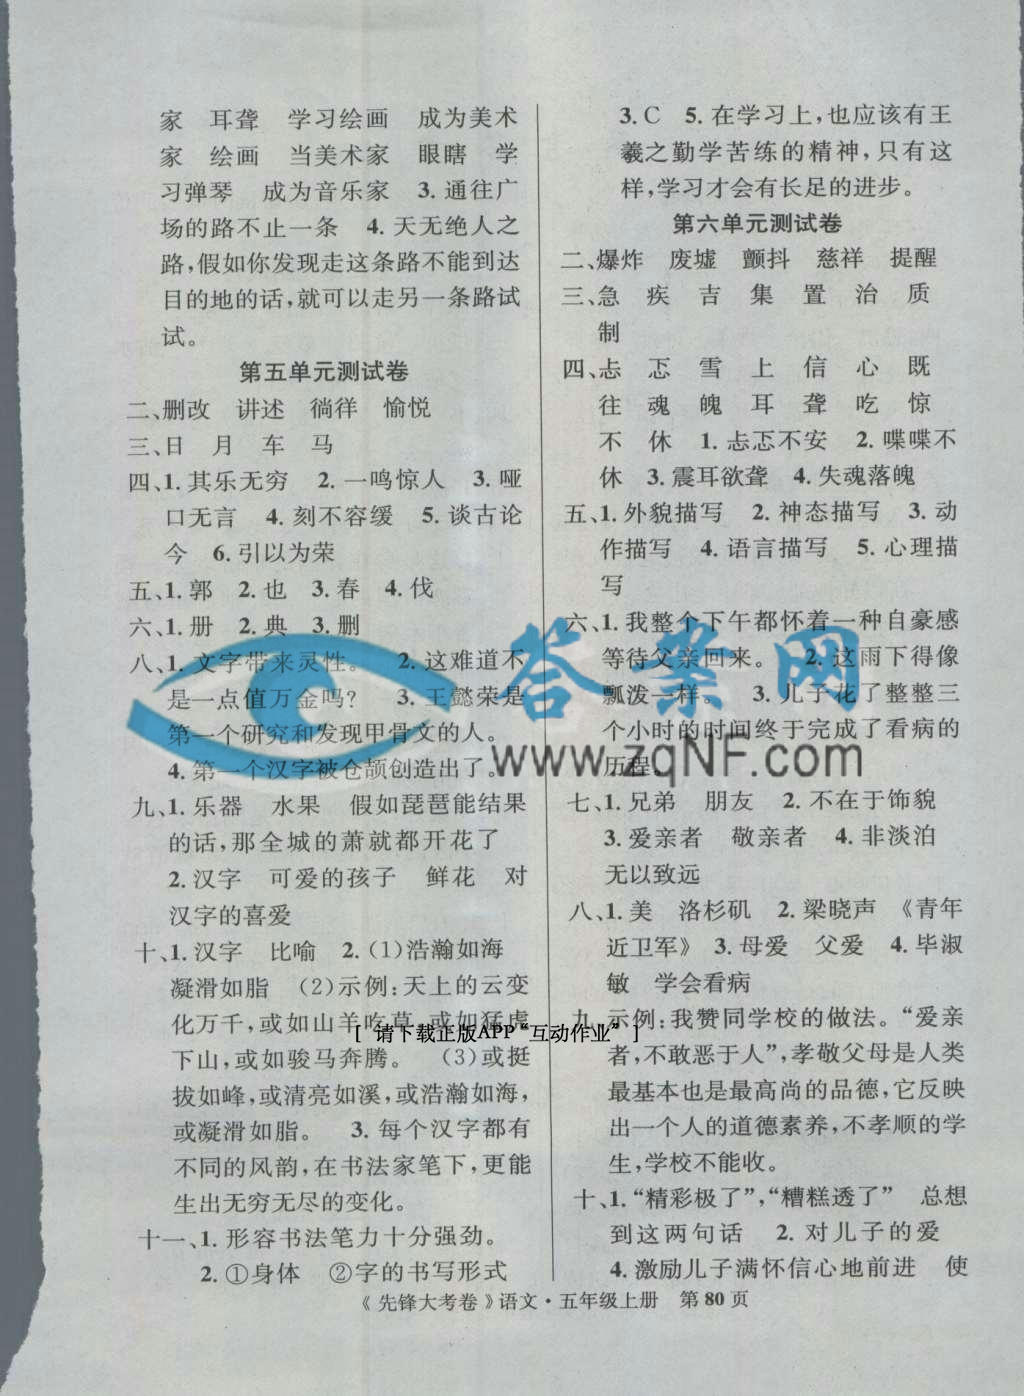 家　耳聋　学习绘画　成为美术
家　绘画　当美术家　眼瞎　学
习弹琴　成为音乐家　3. 通往广
场的路不止一条　4. 天无绝人之
路,假如你发现走这条路不能到达
目的地的话,就可以走另一条路试
试。
第五单元测试卷
二、删改　讲述　徜徉　愉悦
三、日　月　车　马
四、1. 其乐无穷　2. 一鸣惊人　3. 哑
口无言　4. 刻不容缓　5. 谈古论
今　6. 引以为荣
五、1. 郭　2. 也　3. 春　4. 伐
六、1. 册　2. 典　3. 删
八、1. 文字带来灵性。　2. 这难道不
是一点值万金吗?　3. 王懿荣是
第一个研究和发现甲骨文的人。
4. 第一个汉字被仓颉创造出了。
九、1. 乐器　水果　假如琵琶能结果
的话,那全城的萧就都开花了
2. 汉字　可爱的孩子　鲜花　对
汉字的喜爱
十、1. 汉字　比喻　2. (1)浩瀚如海
凝滑如脂　(2)示例:天上的云变
化万千,或如山羊吃草,或如猛虎
下山,或如骏马奔腾。　(3)或挺
拔如峰,或清亮如溪,或浩瀚如海,
或凝滑如脂。　3. 每个汉字都有
不同的风韵,在书法家笔下,更能
生出无穷无尽的变化。
十一、1. 形容书法笔力十分强劲。
2. ①身体　②字的书写形式
3. C　5. 在学习上,也应该有王
羲之勤学苦练的精神,只有这
样,学习才会有长足的进步。
第六单元测试卷
二、爆炸　废墟　颤抖　慈祥　提醒
三、急　疾　吉　集　置　治　质
制
四、忐　忑　雪　上　信　心　既
往　魂　魄　耳　聋　吃　惊
不　休　1. 忐忑不安　2. 喋喋不
休　3. 震耳欲聋　4. 失魂落魄
五、1. 外貌描写　2. 神态描写　3. 动
作描写　4. 语言描写　5. 心理描
写
六、1. 我整个下午都怀着一种自豪感
等待父亲回来。　2. 这雨下得像
瓢泼一样。　3. 儿子花了整整三
个小时的时间终于完成了看病的
历程。
七、1. 兄弟　朋友　2. 不在于饰貌
3. 爱亲者　敬亲者　4. 非淡泊
无以致远
八、1. 美　洛杉矶　2. 梁晓声　《青年
近卫军》　3. 母爱　父爱　4. 毕淑
敏　学会看病
九、示例:我赞同学校的做法。“爱亲
者,不敢恶于人”,孝敬父母是人类
最基本也是最高尚的品德,它反映
出一个人的道德素养,不孝顺的学
生,学校不能收。
十、1. “精彩极了”,“糟糕透了”　总想
到这两句话　2. 对儿子的爱
4. 激励儿子满怀信心地前进　使
答案网
www.zqNF.com
[ 请下载正版APP“互动作业” ]
《先锋大考卷》语文·五年级上册　第 80 页